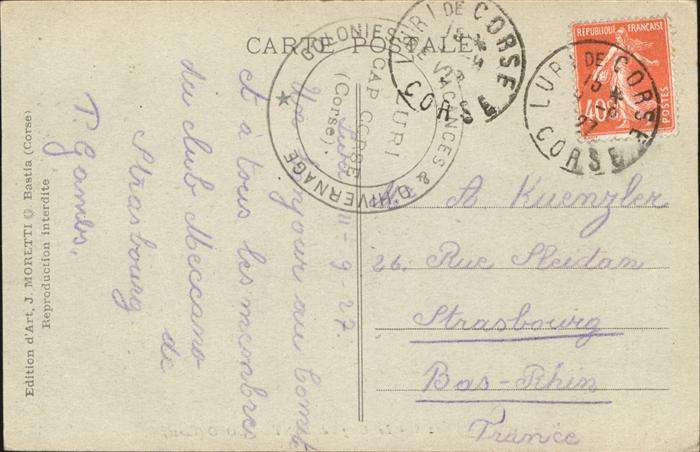 CARTE POSTALE
COLONIES DE VACANCES & D'HIVERNAGE
LURI
CAP CORSE
(Corse).
LURI DE CORSE
CORSE
LURI DE CORSE
15
27
CORSE
REPUBLIQUE FRANÇAISE
POSTES
40c
Luri - 9 - 27
au Comité
et à tous les membres
du club Meccano
de
Strasbourg
P. Gambs.
A Kuenzler
26. Rue Sleidan
Strasbourg
Bas-Rhin
France
Edition d'Art, J. MORETTI © Bastia (Corse)
Reproduction interdite